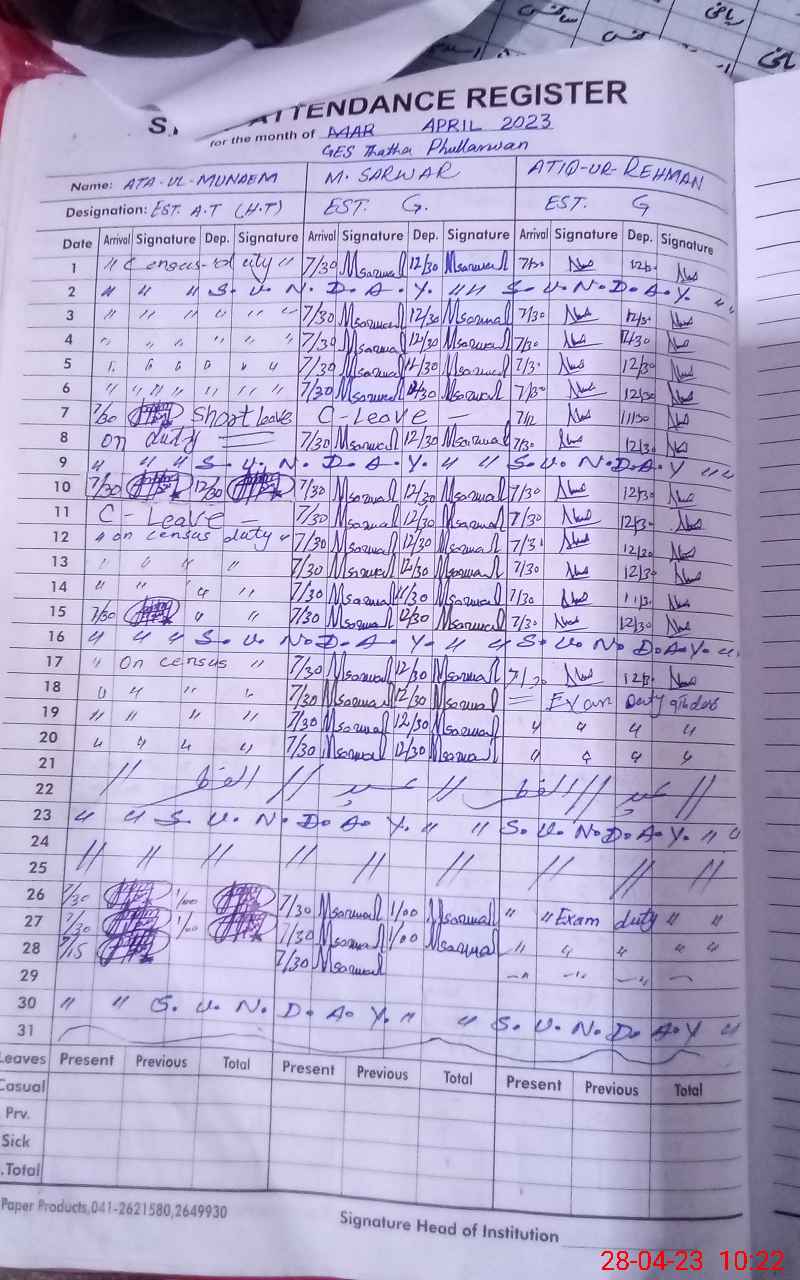 ATTENDANCE REGISTER
for the month of MAR APRIL 2023
GES Thatha Phullarwan
Name: ATA-UL-MUNAEM M. SARWAR ATIQ-UR-REHMAN
Designation: EST. A.T (H.T) EST. G. EST. G
Date Arrival Signature Dep. Signature Arrival Signature Dep. Signature Arrival Signature Dep. Signature
1 7/30 Msarwar 12/30 Msarwar 7/30 12/30
2 " " " S. U. N. D. A. Y. " " S. U. N. D. A. Y. " "
3 " " " " " " 7/30 Msarwar 12/30 Msarwar 7/30 12/30
4 " " " " " " 7/30 Msarwar 12/30 Msarwar 7/30 12/30
5 " " " " " " 7/30 Msarwar 12/30 Msarwar 7/30 12/30
6 " " " " " " " 7/30 Msarwar 12/30 Msarwar 7/30 12/30
7 7/30 Short leave C-Leave — 11/30
8 on duty 7/30 Msarwar 12/30 Msarwar 7/30 12/30
9 " " " S. U. N. D. A. Y. " " S. U. N. D. A. Y " "
10 7/30 12/30 7/30 Msarwar 12/30 Msarwar 7/30 12/30
11 C - Leave — 7/30 Msarwar 12/30 Msarwar 7/30 12/30
12 " on census duty " 7/30 Msarwar 12/30 Msarwar 7/30 12/30
13 " " " " 7/30 Msarwar 12/30 Msarwar 7/30 12/30
14 " " " " 7/30 Msarwar 11/30 Msarwar 7/30 11/30
15 7/30 " " 7/30 Msarwar 12/30 Msarwar 7/30 12/30
16 " " " S. U. N. D. A. Y. " " S. U. N. D. A. Y. "
17 " On census " 7/30 Msarwar 12/30 Msarwar 7/30 12/30
18 " " " " 7/30 Msarwar 12/30 Msarwar = Exam Duty
19 " " " " 7/30 Msarwar 12/30 Msarwar " " " "
20 " " " " 7/30 Msarwar 12/30 Msarwar " " " "
21
22 // عید الفطر // // عید الفطر // //
23 " " S. U. N. D. A. Y. " " S. U. N. D. A. Y. " "
24
25 // // // // // // // // //
26 7/30 1/00 7/30 Msarwar 1/00 Msarwar " " Exam duty " "
27 7/30 1/00 7/30 Msarwar 1/00 Msarwar " " " " "
28 7/15 7/30 Msarwar
29
30 " " S. U. N. D. A. Y. " " S. U. N. D. A. Y "
31
Leaves Present Previous Total Present Previous Total Present Previous Total
Casual
Prv.
Sick
Total
Paper Products,041-2621580,2649930
Signature Head of Institution
28-04-23 10:22